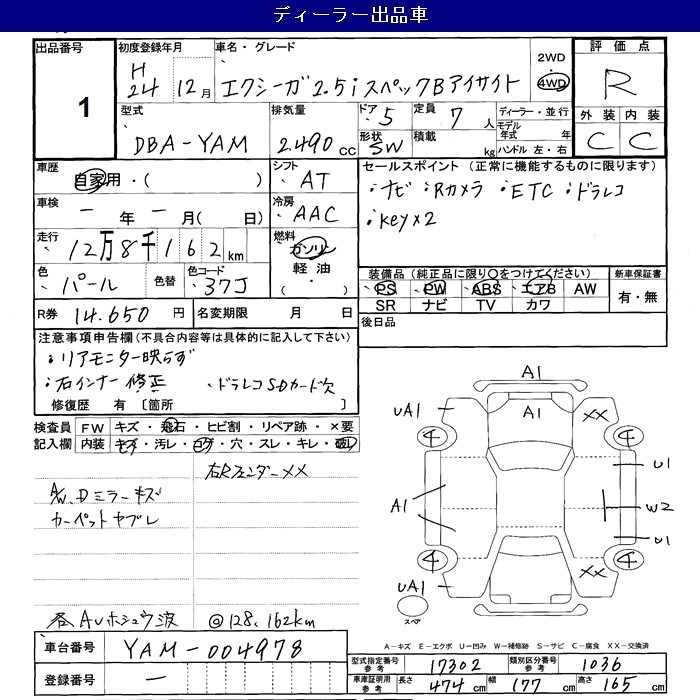 ディーラー出品車
出品番号 1
初度登録年月 H 24 12月
車名・グレード エクシーガ2.5iスペックBアイサイト
2WD・4WD
評価点 R
外装 内装
C C
型式 DBA-YAM
排気量 2490cc
ドア 5
定員 7人
形状 SW
積載 kg
ディーラー・並行
モデル年式 年
ハンドル 左・右
車歴 自家用・( )
シフト AT
セールスポイント (正常に機能するものに限ります)
ナビ Rカメラ ETC ドラレコ
Key×2
車検 ー年ー月( 日)
冷房 AAC
走行 12万8千162km
燃料 ガソリン
軽油
( ・ )
色 パール
色替
色コード 37J
装備品 (純正品に限り○をつけてください)
PS PW ABS エアB AW
SR ナビ TV カワ
新車保証書
有・無
R券 14.650円
名変期限 月 日
後日品
注意事項申告欄(不具合内容等は具体的に記入して下さい)
リアモニター映らず
右インナー修正 ドラレコSDカード欠
修復歴 有 〔箇所 〕
検査員記入欄
FW キズ・飛石・ヒビ割・リペア跡・×要
内装 キズ・汚レ・コゲ・穴・スレ・キレ・破レ
右Rフェンダー××
A/W、Dミラーキズ
カーペットヤブレ
各AUホシュウ波 @128,162km
A1
UA1 A1 ××
4 4
U1
A1 W2
U1
4 4
UA1 ××
スペア
A-キズ E-エクボ U-凹み W-補修跡 S-サビ C-腐食 XX-交換済
車台番号 YAM-004978
登録番号 ー
型式指定番号 参考 17302
類別区分番号 参考 1036
車庫証明用 参考 長さ 474cm 幅 177cm 高さ 165cm